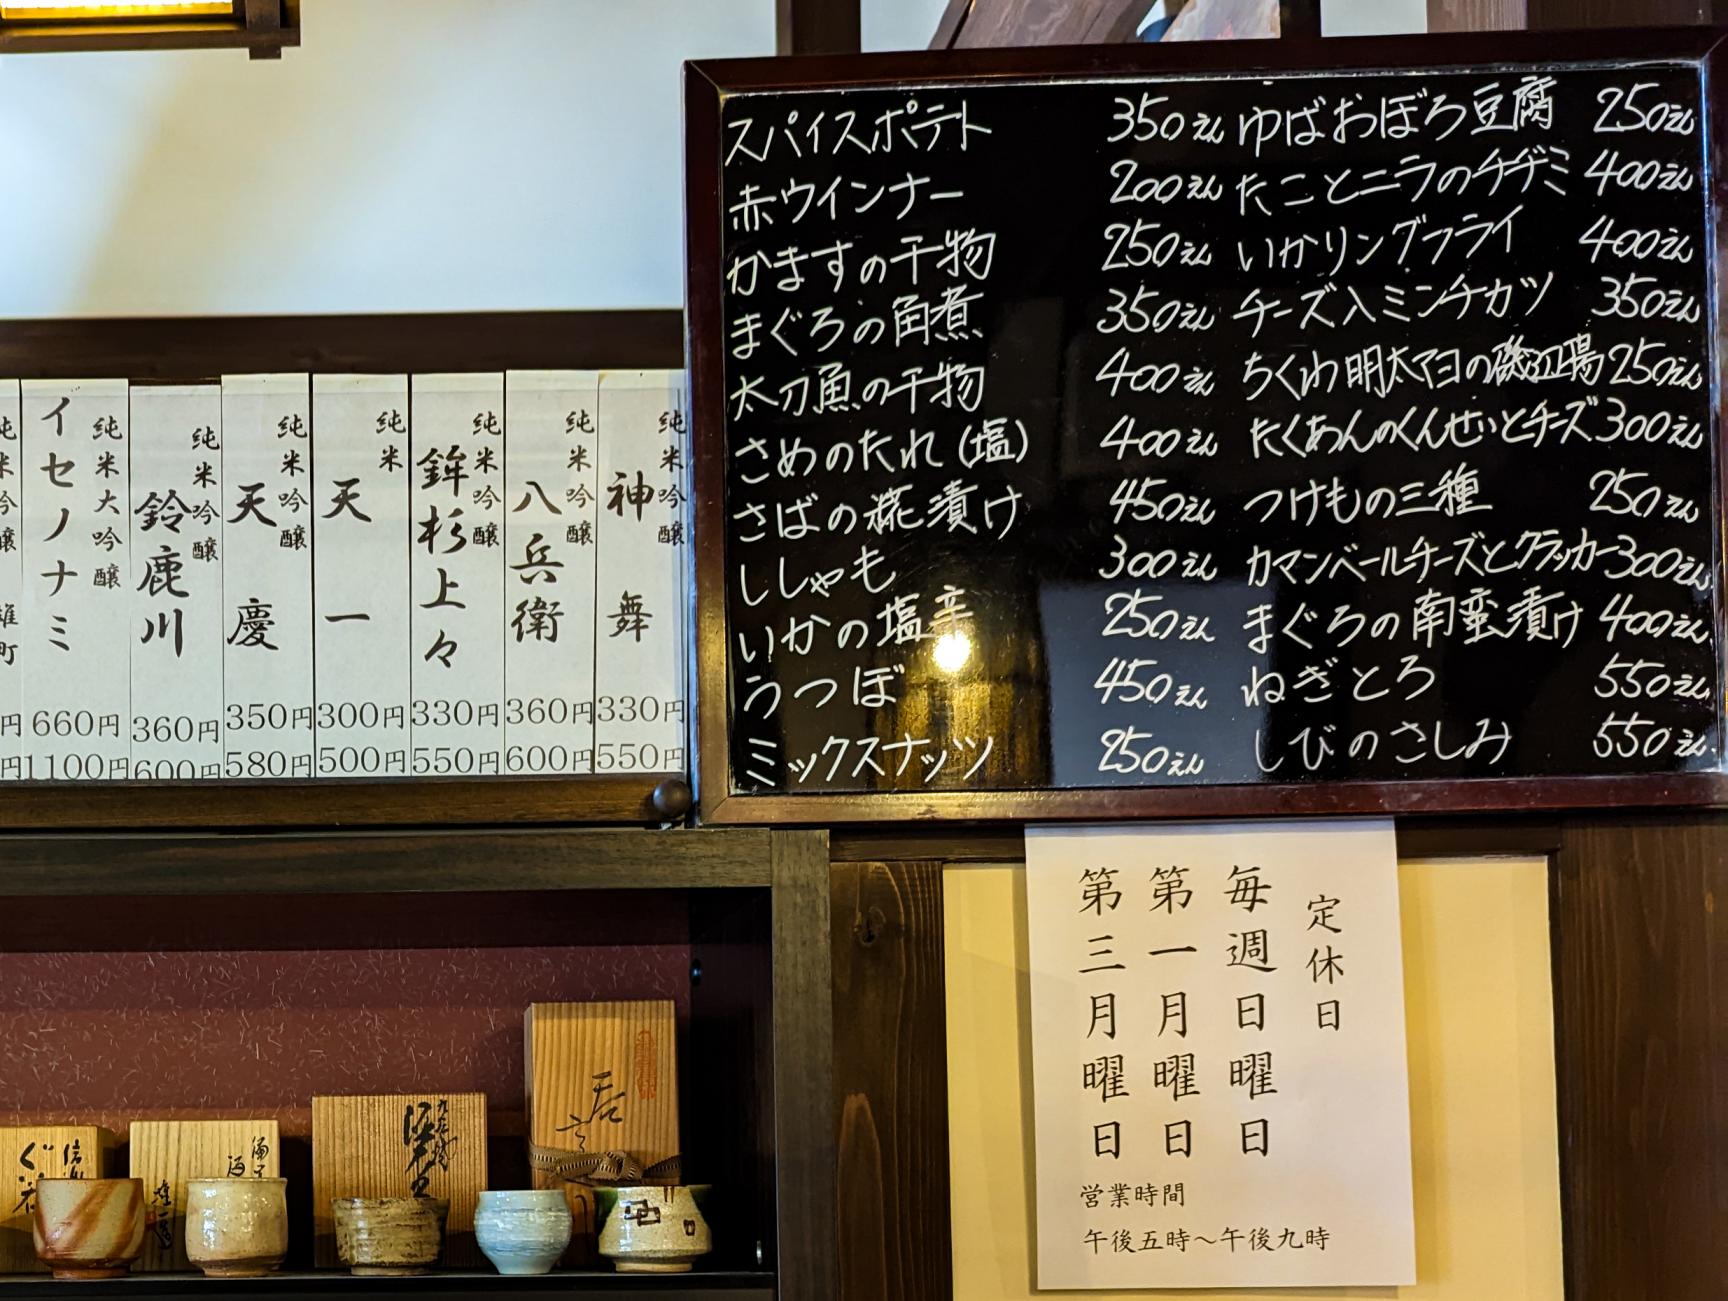 スパイスポテト 350えん
赤ウインナー 200えん
かますの干物 250えん
まぐろの角煮 350えん
太刀魚の干物 400えん
さめのたれ(塩) 400えん
さばの糀漬け 450えん
ししゃも 300えん
いかの塩辛 250えん
うつぼ 450えん
ミックスナッツ 250えん
ゆばおぼろ豆腐 250えん
たことニラのチヂミ 400えん
いかリングフライ 400えん
チーズ入ミンチカツ 350えん
ちくわ明太マヨの磯辺揚 250えん
たくあんのくんせいとチーズ 300えん
つけもの三種 250えん
カマンベールチーズとクラッカー 300えん
まぐろの南蛮漬け 400えん
ねぎとろ 550えん
しびのさしみ 550えん
純米吟醸 神舞 330円 550円
純米吟醸 八兵衛 360円 600円
純米吟醸 鉾杉上々 330円 550円
純米 天一 300円 500円
純米吟醸 天慶 350円 580円
純米吟醸 鈴鹿川 360円 600円
純米大吟醸 イセノナミ 660円 1100円
純米吟醸 雄町 円 円
定休日
毎週日曜日
第一月曜日
第三月曜日
営業時間
午後五時〜午後九時